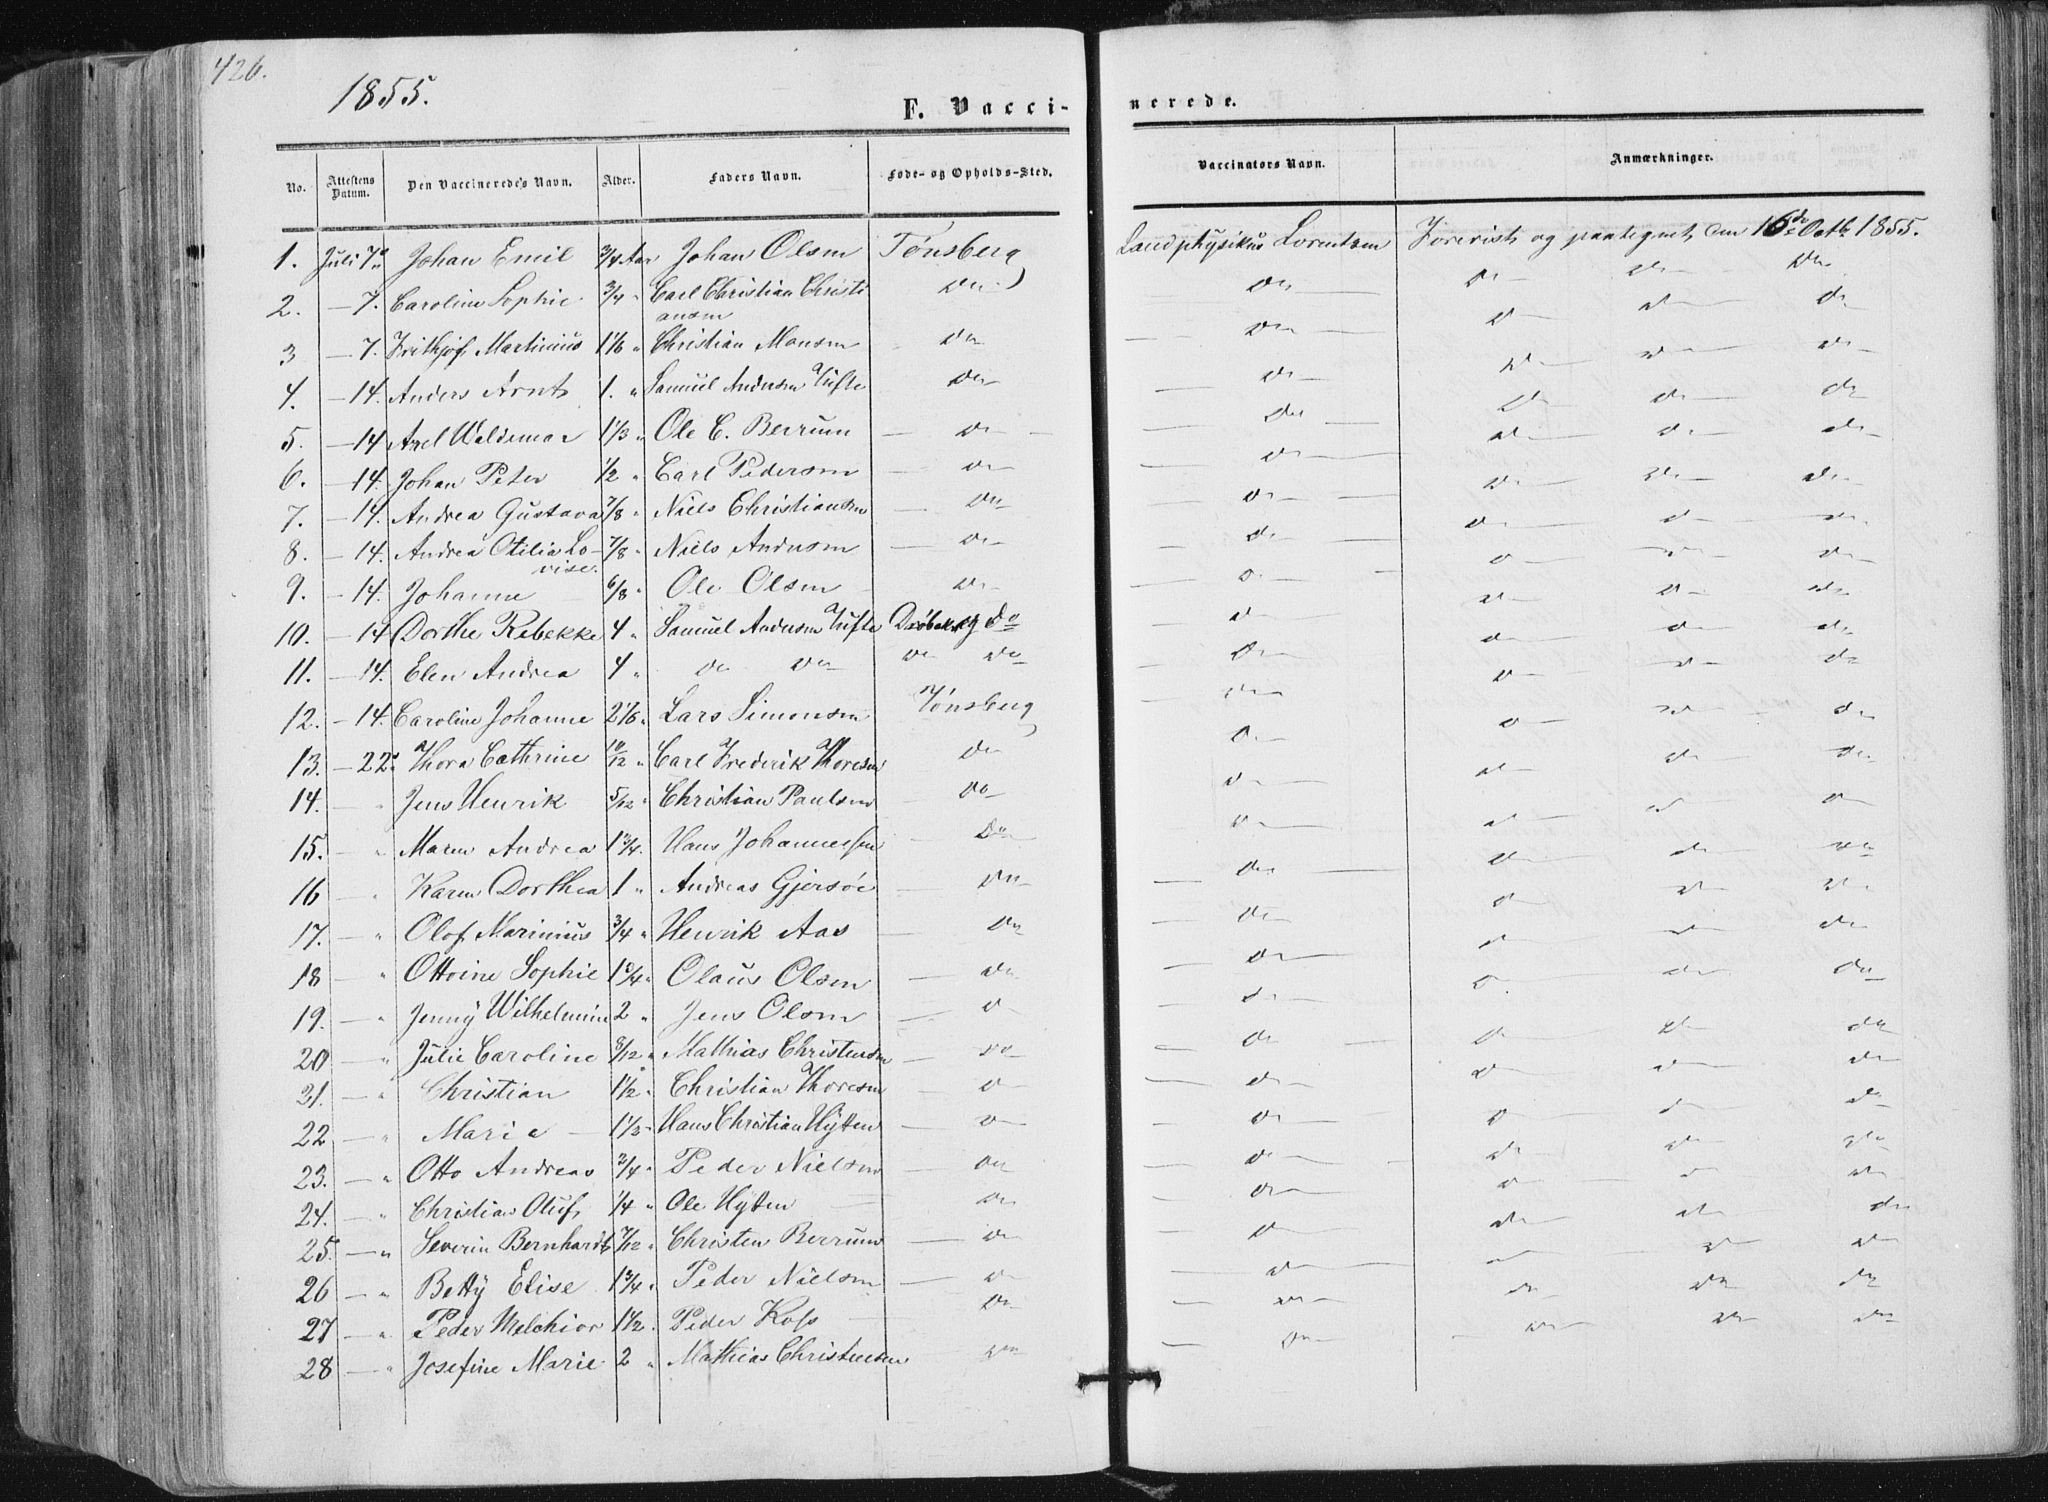 426.
1855.
F. Vacci-
nerede.
No. Attestens Datum. Den Vaccineredes Navn. Alder. Faders Navn. Føde- og Opholds-Sted. Vaccinators Navn. Anmærkninger.
1. Juli 7de Johan Emil 3/4 Aar Johan Olsen Tønsberg Landphysikus Lorentsen Forevist og paategnet, den 16de Octb. 1855.
2. — 7. Caroline Sophie 3/4 " Carl Christian Christi do do do do do
ansen
3 — 7. Frithjof Martinius 1 1/6 " Christian Monsen do do do do do
4. — 14. Anders Arnt 1. " Samuel Andersen Tufte do do do do do
5. — 14 Axel Waldemar 1 1/3 " Ole C. Berrum — do — do do do do
6. — 14. Johan Peter 1/2 " Carl Pedersen — do do do do do
7. — 14. Andrea Gustava 7/8 " Niels Christiansen — do do do do do
8. — 14. Andrea Otilia Lo- 7/8 " Niels Andersen — do do do do do
vise.
9. — 14. Johanne 6/8 " Ole Olsen do do do do do
10. — 14 Dorthe Rebekke 4 " Samuel Andersen Tufte Drøbak og do do do do do
11. — 14. Elen Andrea 4 " do do do do do do do do
12. — 14. Caroline Johanne 2 1/6 " Lars Simonsen Tønsberg do do do do
13. — 22. Thora Cathrine 10/12 " Carl Frederik Thoresen do do do do do
14. — " Jens Henrik 5/12 " Christian Paulsen do do do do do
15. — " Maren Andrea 1 3/4. Hans Johannessen do do do do do
16 — " Karen Dorthea 1 " Andreas Gjersøe — do do do do do
17. — " Olof Marinius 3/4 " Henrik Aas — do do do do do
18 — " Ottoine Sophie 1 3/4 " Olaus Olsen — do do do do do
19. — " Jenny Wilhelmine 2 " Jens Olsen — do do do do do
20 — " Julie Caroline 8/12 " Mathias Christensen — do do do do do
21. — " Christian 1 1/2 " Christian Thoresen — do do do do do
22 — " Marie — 1 1/3 " Hans Christian Hytten — do do do do do
23. — " Otto Andreas 3/4 " Peder Nielsen — do do do do do
24. — " Christian Oluf 1/4 " Ole Hytten — do do do do do
25. — " Severin Bernhardt 7/12 " Christen Berrum — do do do do do
26 — " Betty Elise 1 3/4 " Peder Nielsen — do do do do do
27 — " Peder Melchior 1 1/2 " Peder Koss — do do do do do
28 — " Josefine Marie 2 " Mathias Christensen do do do do do